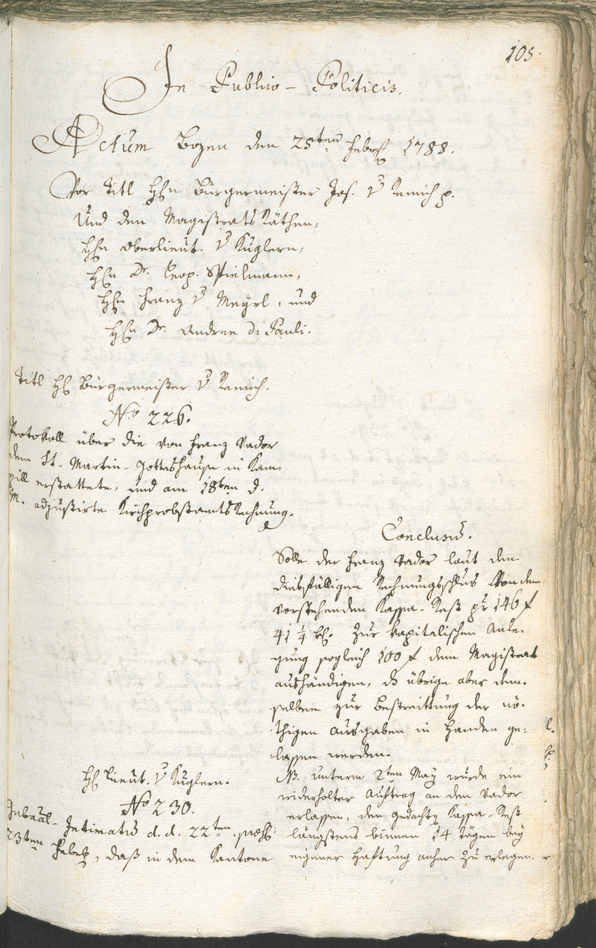 105.
In Publico-Politicis.
Actum Bozen den 25ten Febr. 1788.
Vor Titl Hhn Bürgermeister Jos. v Remich p.
Und den Magistrats Räthen,
Hhn Oberlieut. v Kuglern,
Hhn Dr. Leop. Spielmann,
Hhn Franz v Mayrl, und
Hhn Dr. Andree di Pauli.
Titl Hh Bürgermeister v Remich.
No 226.
Protokoll über die von Franz Vador
dem St. Martin-Gotteshause in Kam-
pill erstattete, und am 18ten d.
M. adjustirte Kirchprobstamts Rechnung.
Conclusum.
Solle der Franz Vador laut den
diesfälligen Rechnungsschluss von dem
vorstehenden Kassa-Rest pr 146 f
41 1/4 kr. zur kapitalischen Anle-
gung sogleich 100 f dem Magistrat
aushändigen, das übrige aber dem-
selben zur Bestreittung der nö-
thigen Ausgaben in Handen ge-
lassen werden.
NB. unterm 2ten May wurde ein
widerholter Auftrag an den Vador
erlassen, den gedachten Kassa-Rest
längstens binnen 14 tägen bey
eigener Haftung anher zu erlegen.
Hh Lieut. v Kuglern.
No 230.
Gubernal-Intimatum d. d. 22ten, praes.
23ten Febr., daß in dem Kantone